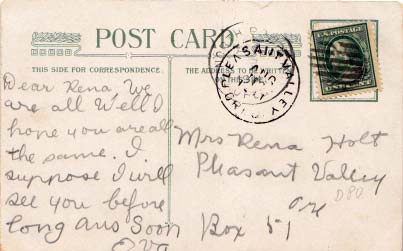 POST CARD
THIS SIDE FOR CORRESPONDENCE.
THE ADDRESS TO BE WRITTEN
PLEASANT VALLEY
U.S. POSTAGE
Dear Rena, We
are all Well I
hope you are all
the same. I
suppose I will
see you before
long ans Soon
Eva
Mrs Rena Holt
Pleasant Valley
Ore
Box 51